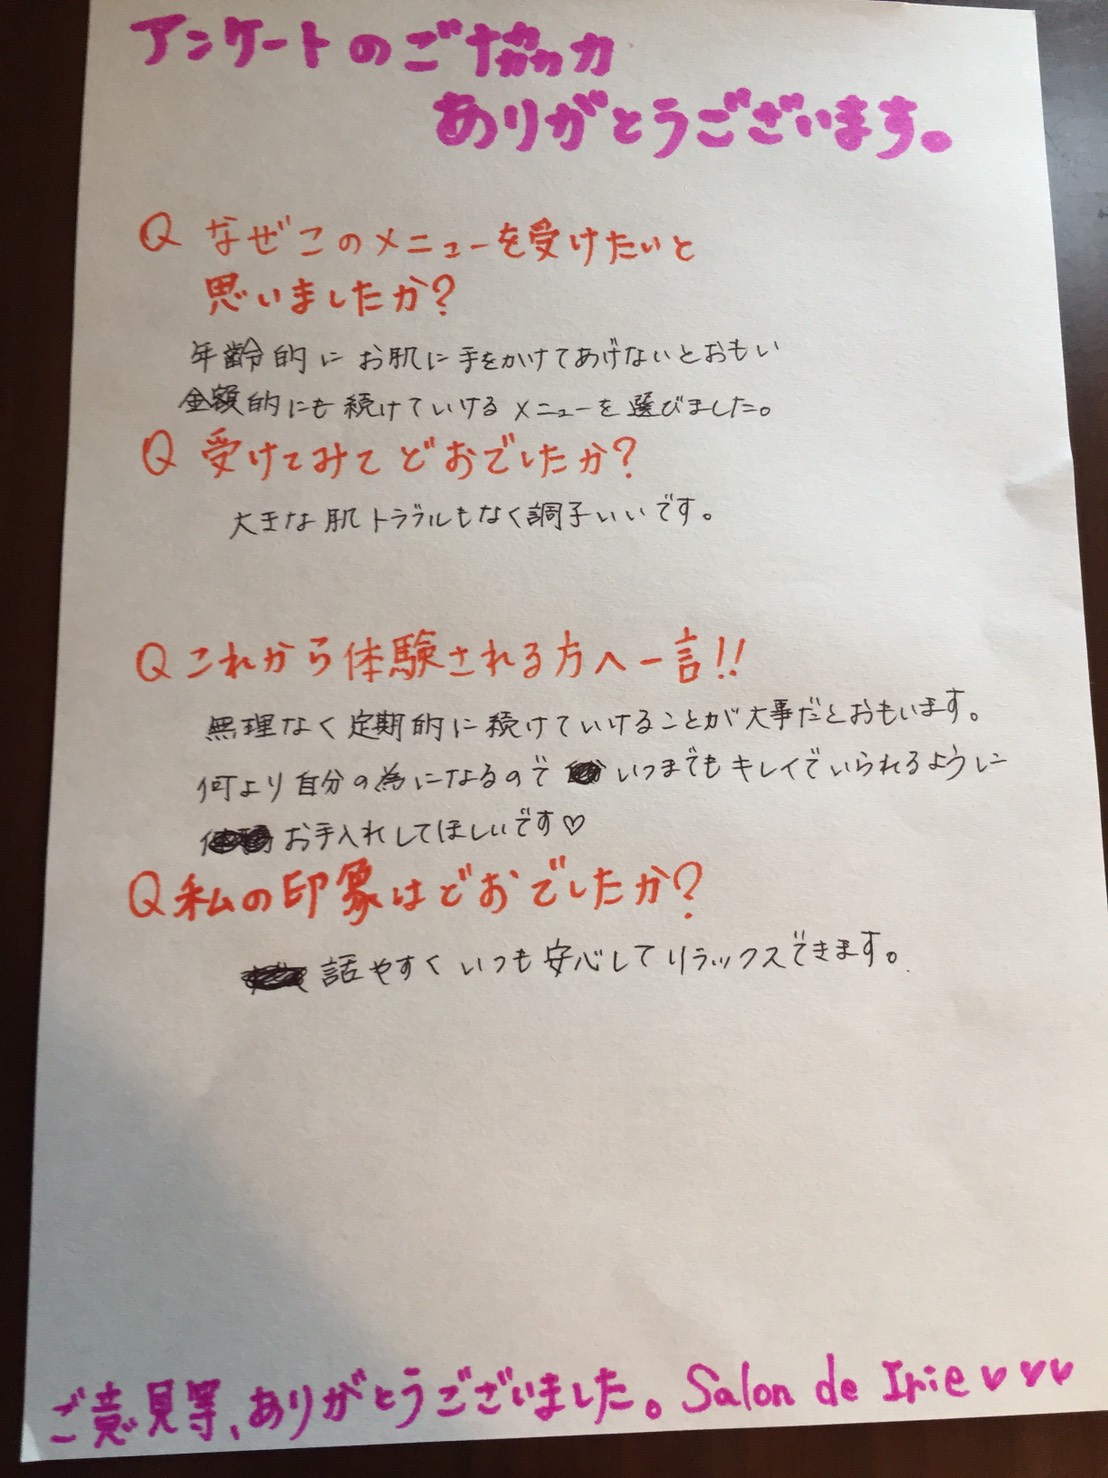 アンケートのご協力
ありがとうございます。
Q なぜこのメニューを受けたいと
思いましたか?
年齢的にお肌に手をかけてあげないとおもい
金額的にも続けていけるメニューを選びました。
Q 受けてみてどおでしたか?
大きな肌トラブルもなく調子いいです。
Q これから体験される方へ一言!!
無理なく定期的に続けていけることが大事だとおもいます。
何より自分の為になるので いつまでもキレイでいられるように
お手入れしてほしいです♡
Q 私の印象はどおでしたか?
話やすくいつも安心してリラックスできます。
ご意見等、ありがとうございました。Salon de Irie♥♥♥